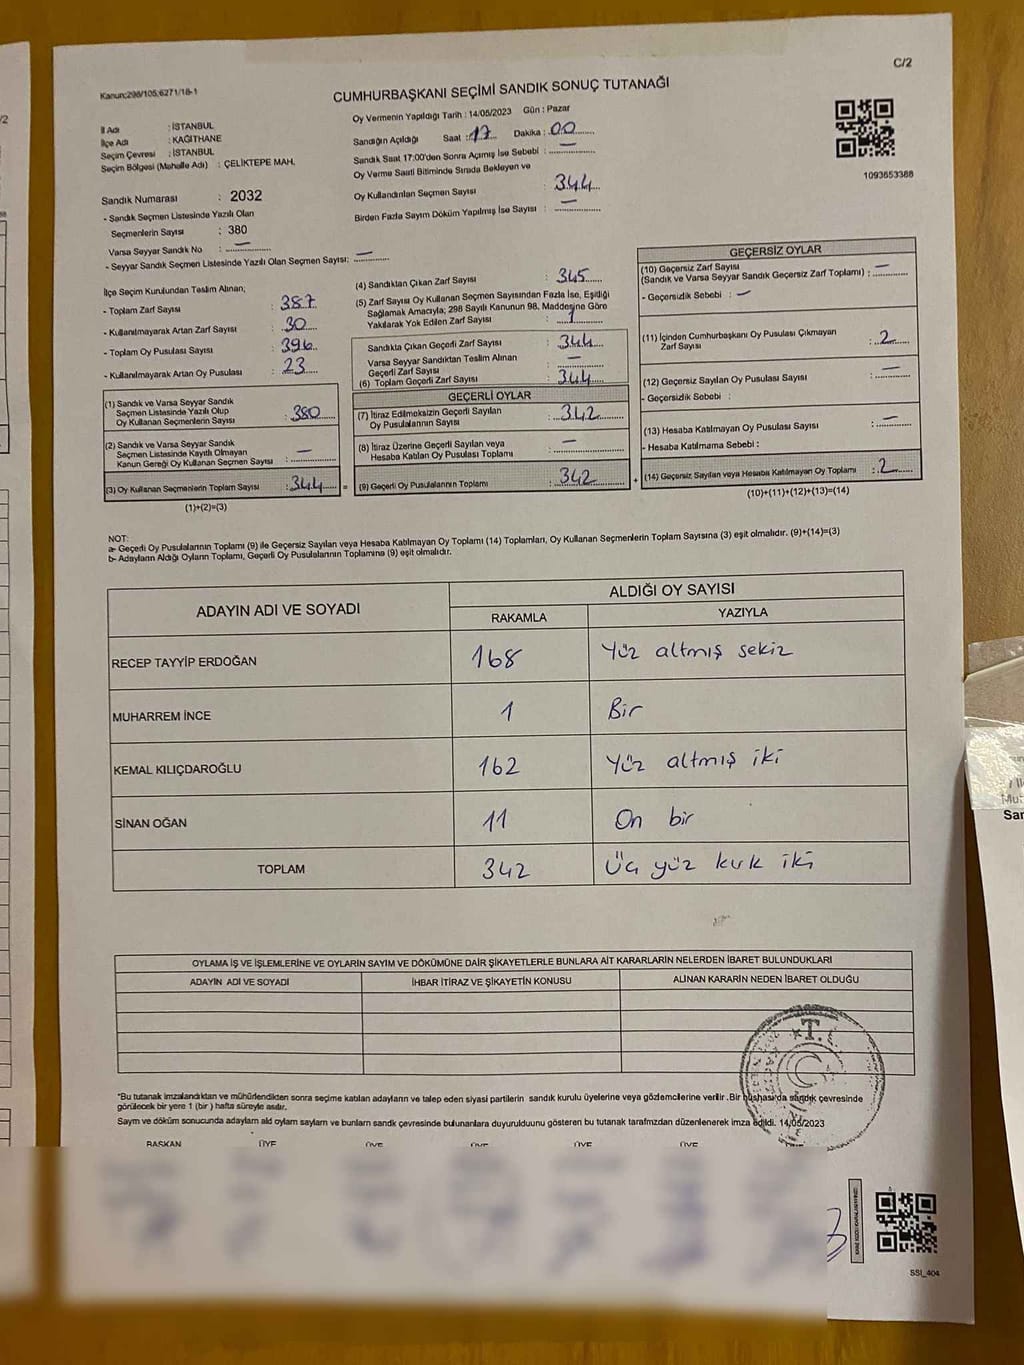 C/2
Kanun:298/105;6271/18-1
CUMHURBAŞKANI SEÇİMİ SANDIK SONUÇ TUTANAĞI
İl Adı : İSTANBUL
İlçe Adı : KAĞITHANE
Seçim Çevresi : İSTANBUL
Seçim Bölgesi (Mahalle Adı) : ÇELİKTEPE MAH.
Sandık Numarası : 2032
- Sandık Seçmen Listesinde Yazılı Olan
Seçmenlerin Sayısı : 380
Varsa Seyyar Sandık No : —
- Seyyar Sandık Seçmen Listesinde Yazılı Olan Seçmen Sayısı: —
Oy Vermenin Yapıldığı Tarih : 14/05/2023 Gün : Pazar
Sandığın Açıldığı Saat : 17 Dakika : 00
Sandık Saat 17:00'den Sonra Açımış İse Sebebi : —
Oy Verme Saati Bitiminde Sırada Bekleyen ve
Oy Kullandırılan Seçmen Sayısı : 344
Birden Fazla Sayım Döküm Yapılmış İse Sayısı : —
1093653388
İlçe Seçim Kurulundan Teslim Alınan;
- Toplam Zarf Sayısı : 387
- Kullanılmayarak Artan Zarf Sayısı : 30
- Toplam Oy Pusulası Sayısı : 396
- Kullanılmayarak Artan Oy Pusulası : 23
(1) Sandık ve Varsa Seyyar Sandık
Seçmen Listesinde Yazılı Olup
Oy Kullanan Seçmenlerin Sayısı : 380
(2) Sandık ve Varsa Seyyar Sandık
Seçmen Listesinde Kayıtlı Olmayan
Kanun Gereği Oy Kullanan Seçmen Sayısı : —
(3) Oy Kullanan Seçmenlerin Toplam Sayısı : 344 =
(1)+(2)=(3)
(4) Sandıktan Çıkan Zarf Sayısı : 345
(5) Zarf Sayısı Oy Kullanan Seçmen Sayısından Fazla İse, Eşitliği
Sağlamak Amacıyla; 298 Sayılı Kanunun 98. Maddesine Göre
Yakılarak Yok Edilen Zarf Sayısı : 1
Sandıkta Çıkan Geçerli Zarf Sayısı : 344
Varsa Seyyar Sandıktan Teslim Alınan
Geçerli Zarf Sayısı : —
(6) Toplam Geçerli Zarf Sayısı : 344
GEÇERLİ OYLAR
(7) İtiraz Edilmeksizin Geçerli Sayılan
Oy Pusulalarının Sayısı : 342
(8) İtiraz Üzerine Geçerli Sayılan veya
Hesaba Katılan Oy Pusulası Toplamı : —
(9) Geçerli Oy Pusulalarının Toplamı : 342 +
GEÇERSİZ OYLAR
(10) Geçersiz Zarf Sayısı
(Sandık ve Varsa Seyyar Sandık Geçersiz Zarf Toplamı) : —
- Geçersizlik Sebebi : —
(11) İçinden Cumhurbaşkanı Oy Pusulası Çıkmayan
Zarf Sayısı : 2
(12) Geçersiz Sayılan Oy Pusulası Sayısı : —
- Geçersizlik Sebebi :
(13) Hesaba Katılmayan Oy Pusulası Sayısı : —
- Hesaba Katılmama Sebebi :
(14) Geçersiz Sayılan veya Hesaba Katılmayan Oy Toplamı : 2
(10)+(11)+(12)+(13)=(14)
NOT:
a- Geçerli Oy Pusulalarının Toplamı (9) ile Geçersiz Sayılan veya Hesaba Katılmayan Oy Toplamı (14) Toplamları, Oy Kullanan Seçmenlerin Toplam Sayısına (3) eşit olmalıdır. (9)+(14)=(3)
b- Adayların Aldığı Oyların Toplamı, Geçerli Oy Pusulalarının Toplamına (9) eşit olmalıdır.
ADAYIN ADI VE SOYADI ALDIĞI OY SAYISI
RAKAMLA YAZIYLA
RECEP TAYYİP ERDOĞAN 168 Yüz altmış sekiz
MUHARREM İNCE 1 Bir
KEMAL KILIÇDAROĞLU 162 Yüz altmış iki
SİNAN OĞAN 11 On bir
TOPLAM 342 Üç yüz kırk iki
OYLAMA İŞ VE İŞLEMLERİNE VE OYLARIN SAYIM VE DÖKÜMÜNE DAİR ŞİKAYETLERLE BUNLARA AİT KARARLARIN NELERDEN İBARET BULUNDUKLARI
ADAYIN ADI VE SOYADI İHBAR İTİRAZ VE ŞİKAYETİN KONUSU ALINAN KARARIN NEDEN İBARET OLDUĞU
T.C
*Bu tutanak imzalandıktan ve mühürlendikten sonra seçime katılan adayların ve talep eden siyasi partilerin sandık kurulu üyelerine veya gözlemcilerine verilir. Bir nüshası da sandık çevresinde
görülecek bir yere 1 (bir) hafta süreyle asılır.
Sayım ve döküm sonucunda adayların aldı oyların sayların ve bunların sandk çevresinde bulunanlara duyurulduunu gösteren bu tutanak tarafmzdan düzenlenerek imza edildi. 14/05/2023
BAŞKAN ÜYE ÜYE ÜYE ÜYE ÜYE
SSI_404